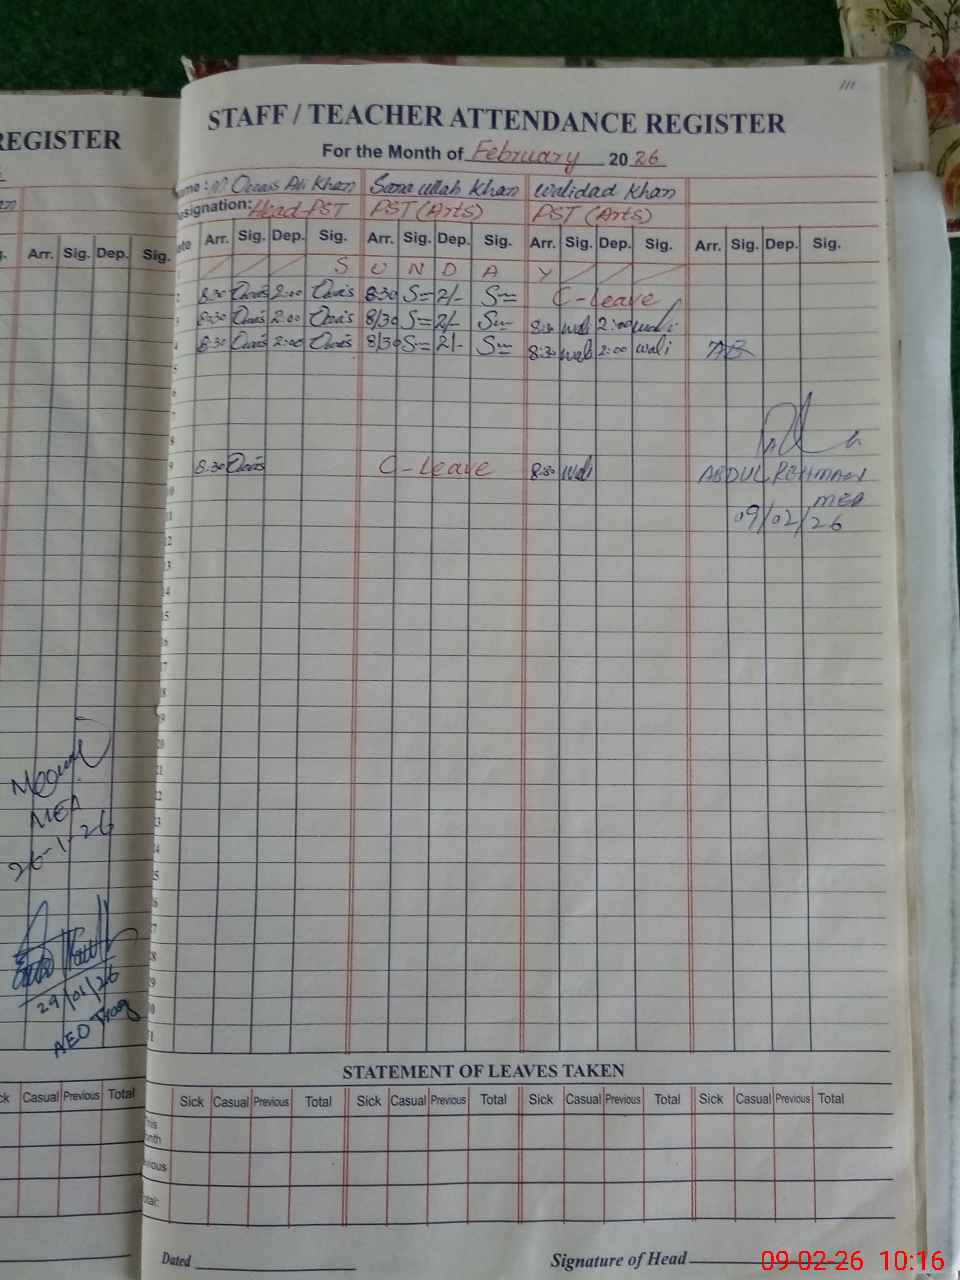 111
REGISTER
STAFF / TEACHER ATTENDANCE REGISTER
For the Month of February 2026
ame : M Owais Ali Khan Sana ullah Khan Walidad Khan
esignation: Head-PST PST (Arts) PST (Arts)
Arr. Sig. Dep. Sig. Arr. Sig. Dep. Sig. Arr. Sig. Dep. Sig. Arr. Sig. Dep. Sig.
Arr. Sig. Dep. Sig.
S U N D A Y
8:30 Owais 2:00 Owais 8:30 2/- C-Leave
8:30 Owais 2:00 Owais 8/30 2/- 8:30 wali 2:00 wali
8:30 Owais 2:00 Owais 8/30 2/- 8:30 wali 2:00 wali
5
6
7
8
9 8:30 Owais C-Leave 8:30 wali ABDUL REHMAN
10 MEA
11 09/02/26
12
13
14
15
16
17
18
19
20
21
MEA
26-1-26
29/01/26
AEO
STATEMENT OF LEAVES TAKEN
Sick Casual Previous Total Sick Casual Previous Total Sick Casual Previous Total Sick Casual Previous Total
ck Casual Previous Total
his
onth
vious
otal:
Dated
Signature of Head
09-02-26 10:16